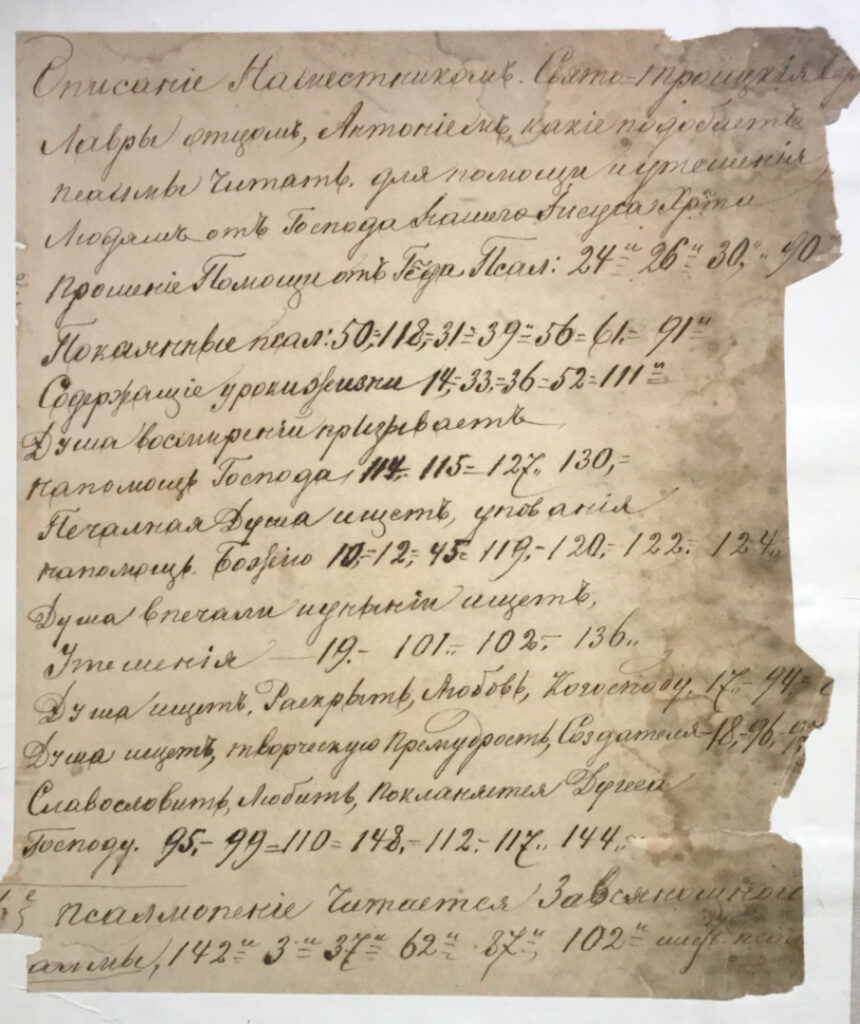 Описаніе Наместникомъ. Свято=Троицкія
Лавры отцомъ, Антоніемъ, какіе подобаетъ
псалмы Читать. для помощи и утешенія
Людямъ отъ Господа Нашего Іисуса Хрта
Прошеніе Помощи отъ Гсда Псал: 24и 26и 30,и 90
Покаянные псал: 50,=118,=31=39=56=61,= 91и
Содержащіе уроки жизни 14,=33,=36=52=111=
Душа восмиреніи призываетъ
напомощь Господа, 114,. 115= 127,, 130,=
Печалная Душа ищетъ, упованія
напомощь. Божію 10,=12,=45= 119,- 120,- 122,- 124,,
Душа впечали иуныніи ищетъ,
Утешенія — 19.- 101,, 102,- 136,,
Душа ищетъ, Раскрыть, Любовь, Когосподу. 17,- 94,-
Душа ищетъ, творческую Премудрость, Создателя-18,-96,-97
Славословить, Любить, покланяется Душа
Господу. 95,- 99=110= 148,- 112,- 117,, 144,,
Псалмопеніе Читается
142и 3и 37и 62и 87и, 102и